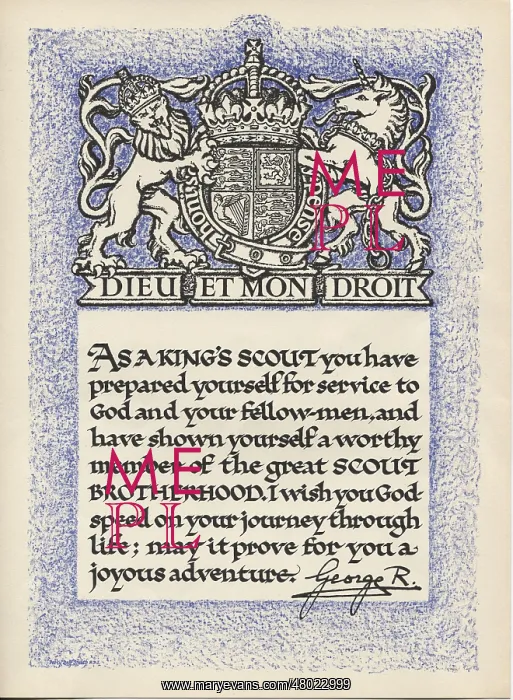 HONI
PENSE
DIEU ET MON DROIT
AS A KING'S SCOUT you have
prepared yourself for service to
God and your fellow-men, and
have shown yourself a worthy
member of the great SCOUT
BROTHERHOOD. I wish you God-
speed on your journey through
life; may it prove for you a
joyous adventure. George R.
ME
PL
ME
PL
www.maryevans.com/48022999